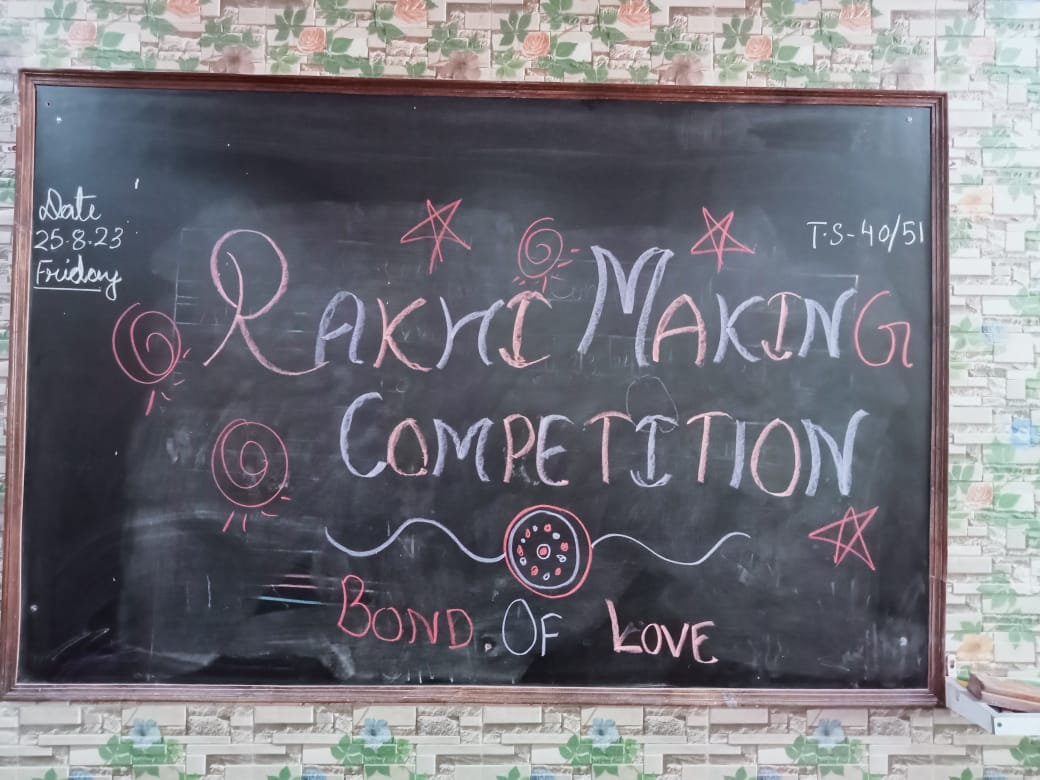 Date
25.8.23
Friday
T.S-40/51
RAKHI MAKING
COMPETITION
BOND OF LOVE